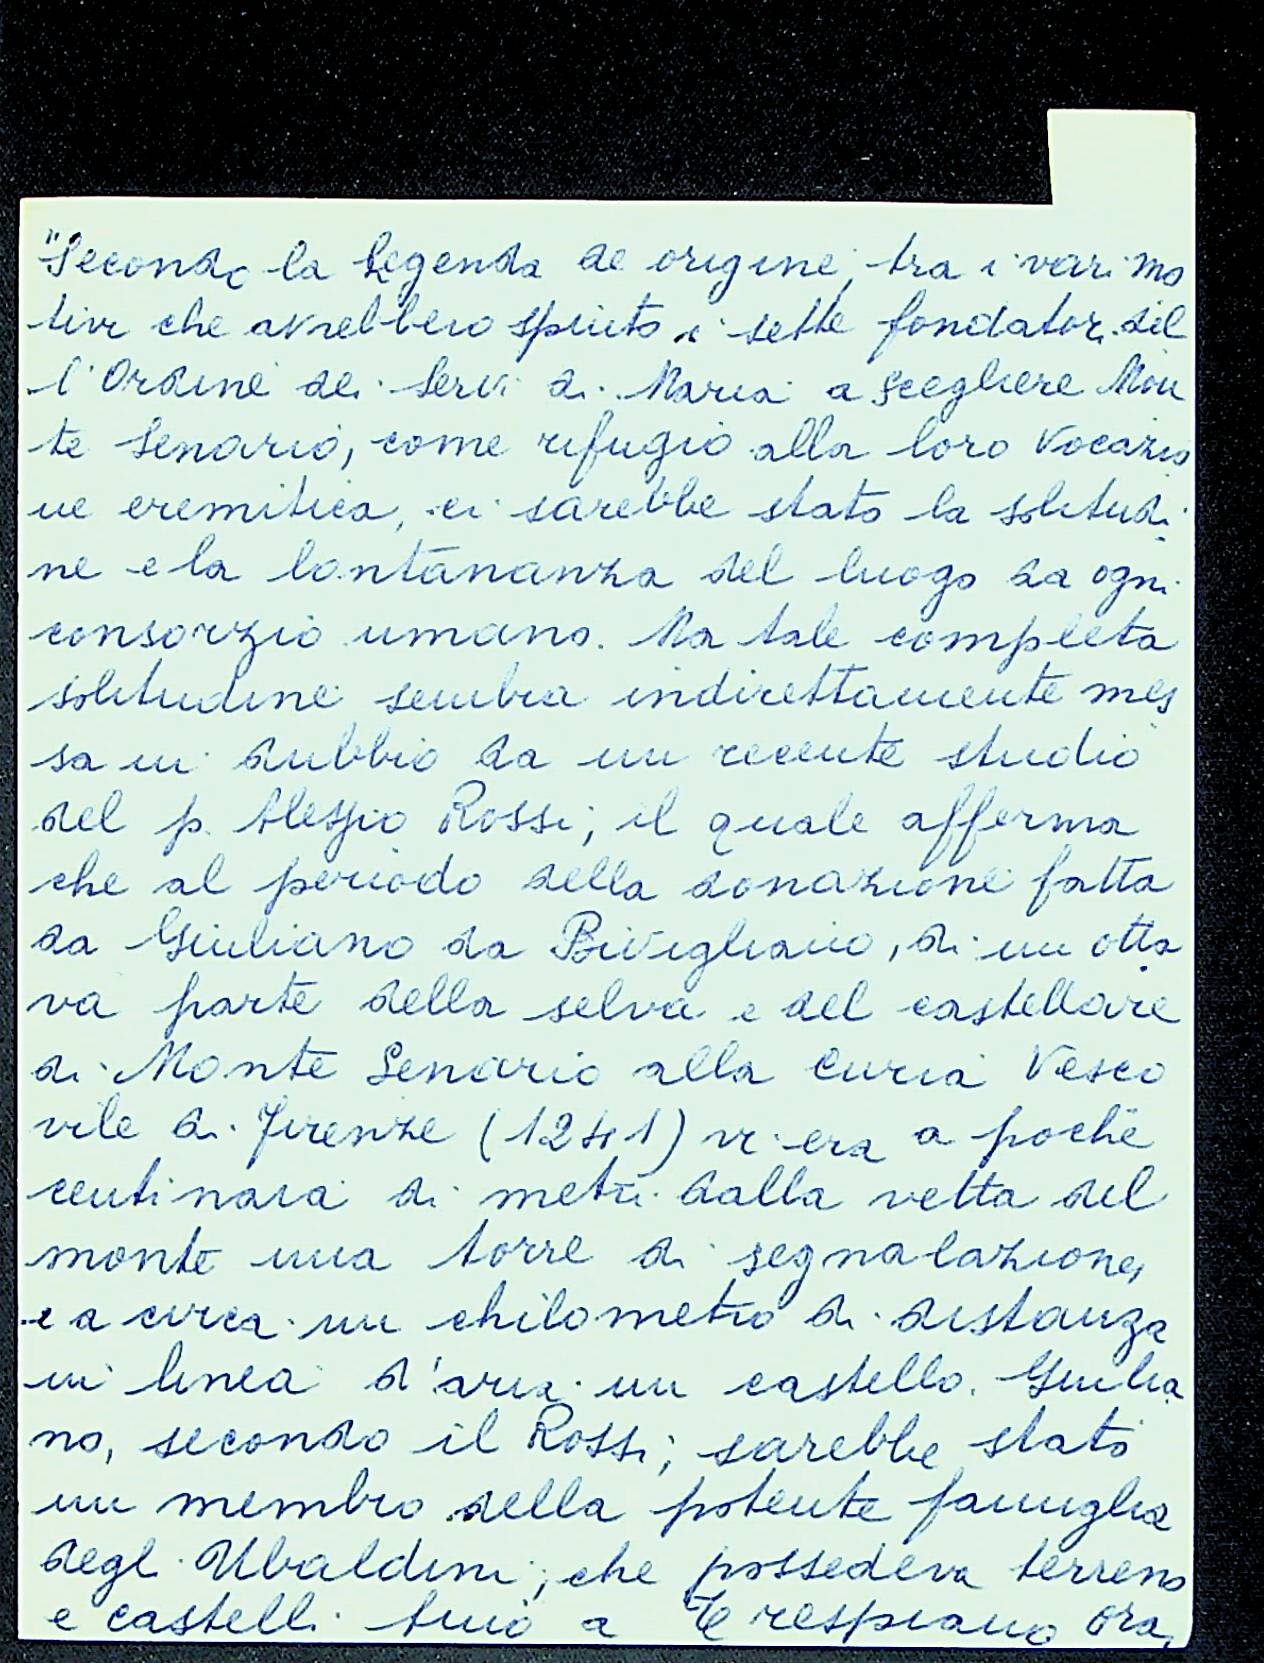 "Secondo la Legenda de origine, tra i vari mo
tivi che avrebbero spinto i sette fondatori del
l'Ordine dei Servi di Maria a scegliere Mon
te Senario, come rifugio alla loro vocazio
ne eremitica, ci sarebbe stato la solitudi
ne e la lontananza del luogo da ogni
consorzio umano. Ma tale completa
solitudine sembra indirettamente mes
sa in dubbio da un recente studio
del p. Alessio Rossi, il quale afferma
che al periodo della donazione fatta
da Giuliano da Bivigliano, di un otta
va parte della selva e del castellare
di Monte Senario alla Curia Vesco
vile di Firenze (1241) vi era a poche
centinaia di metri dalla vetta del
monte una torre di segnalazione,
e a circa un chilometro di distanza
in linea d'aria un castello. Giulia
no, secondo il Rossi, sarebbe stato
un membro della potente famiglia
degli Ubaldini, che possedeva terreno
e castelli fino a Trespiano ora,